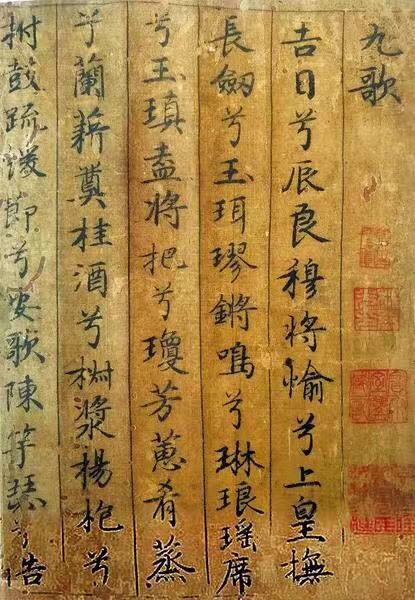 九歌
吉日兮辰良穆將愉兮上皇撫
長劒兮玉珥璆鏘鳴兮琳琅瑤席
兮玉瑱盍將把兮瓊芳蕙肴蒸
兮蘭藉奠桂酒兮椒漿楊枹兮
拊鼓疏緩節兮安歌陳竽瑟兮浩